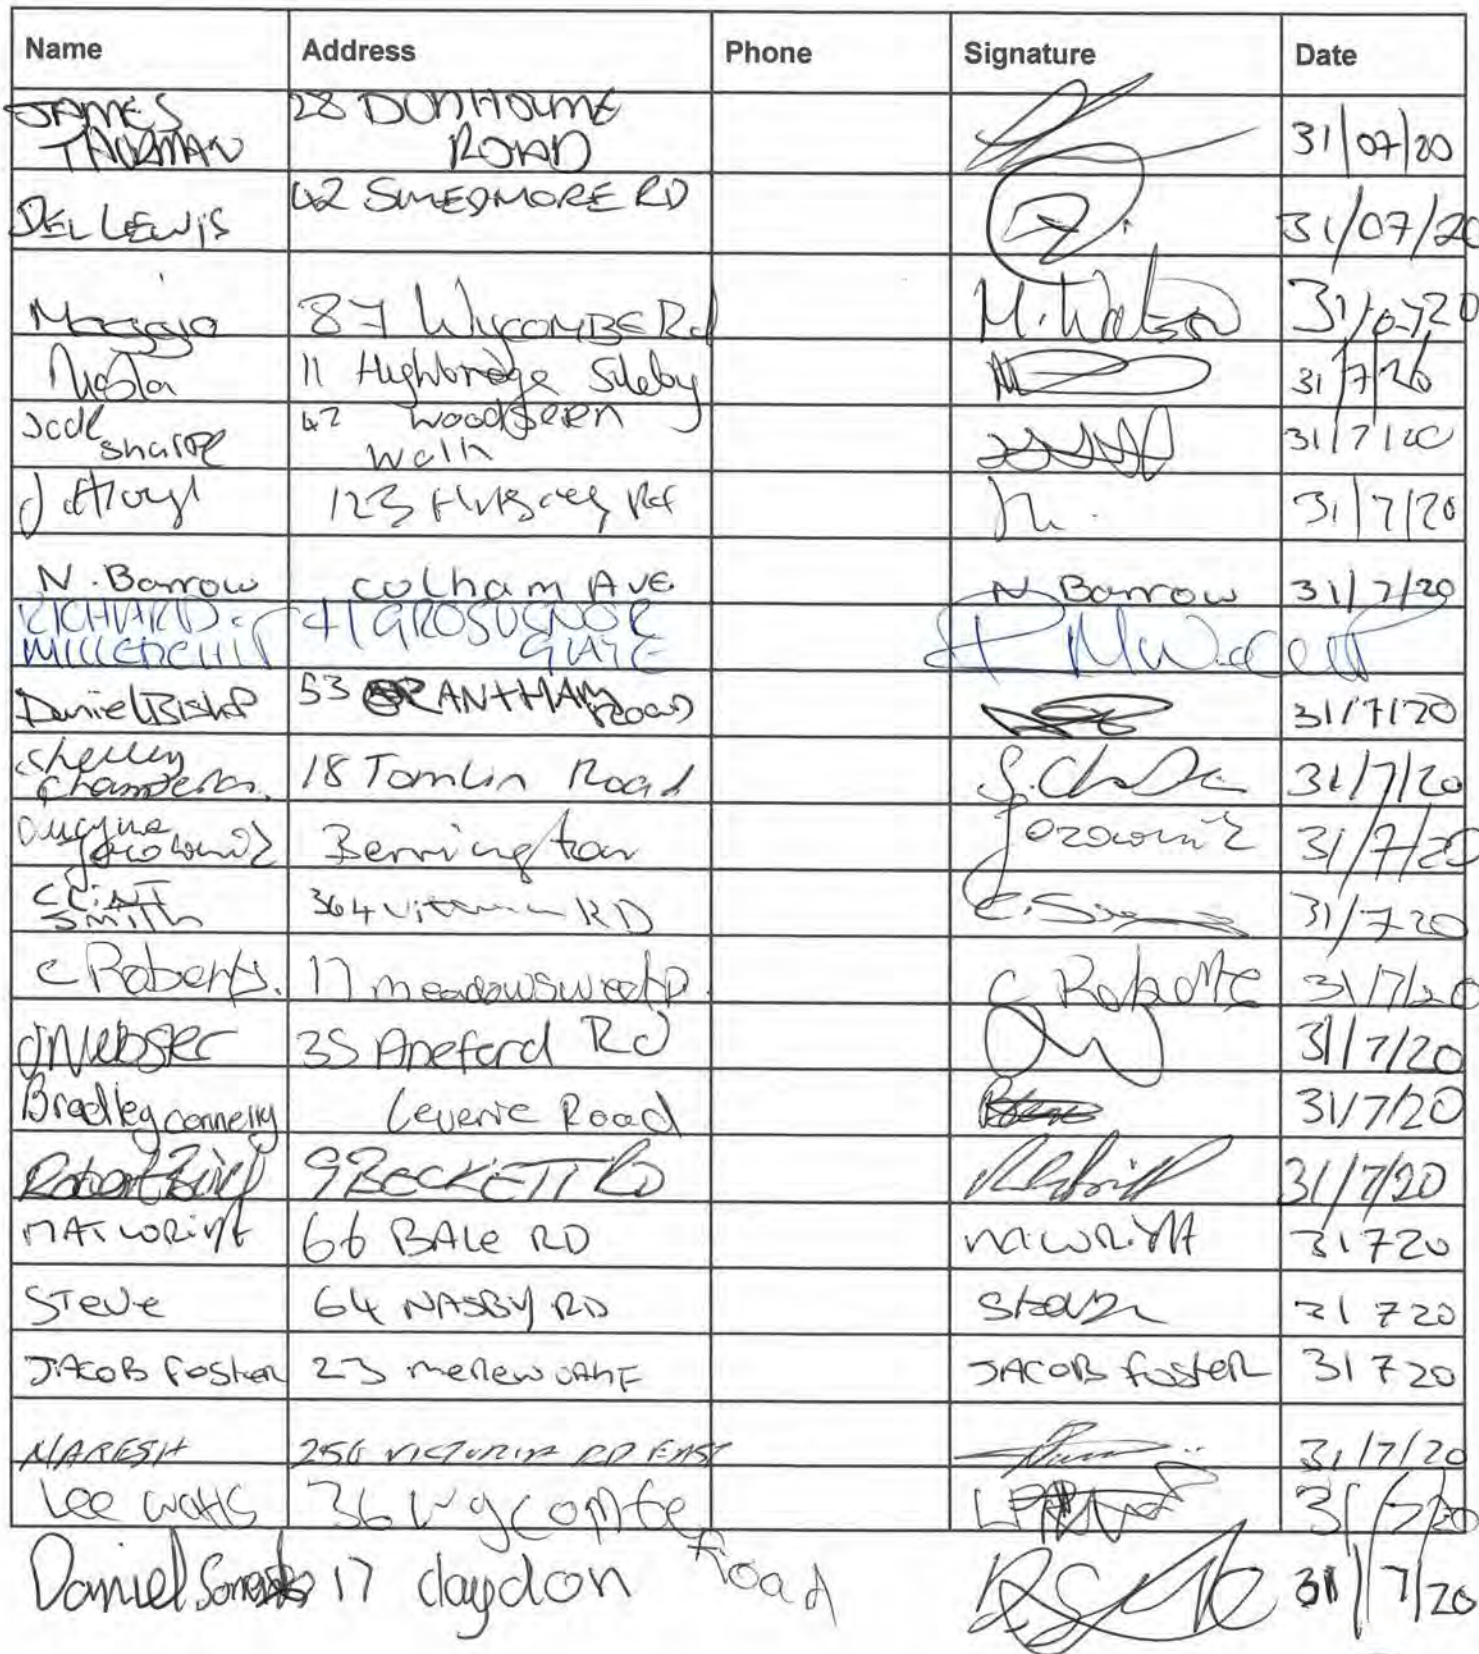 Name Address Phone Signature Date
JAMES 28 DONHOLME
THURMAN ROAD 31/07/20
DEL LEWIS 42 SMEDMORE RD 31/07/20
Maggie 87 WYCOMBE Rd M. Watson 31/07/20
11 Highbridge Sileby 31/7/20
42 woodgreen
Sharpe walk 31/7/20
123 Rd 31/7/20
N. Barrow Colham AVE N Barrow 31/7/20
RICHARD 41 GROSVENOR
MILLERCHIP GATE
Daniel Bishop 53 GRANTHAM ROAD 31/7/20
Shelley
18 Tomlin Road 31/7/20
Berrington 31/7/20
CLINT
SMITH 364 RD 31/7/20
C Roberts. 17 meadowsweet C Roberts 31/7/20
J Webster 35 Rd 31/7/20
Bradley connelly Leveric Road 31/7/20
Robert 9 BECKETT RD 31/7/20
MAT WRIGHT 66 BALE RD 31 7 20
STEVE 64 NASBY RD 31 7 20
JACOB FOSTER 23 JACOB FOSTER 31 7 20
NARESH 256 VICTORIA RD EAST 31/7/20
Lee Watts 36 Wycombe Road 31/7/20
Daniel 17 claydon 31/7/20